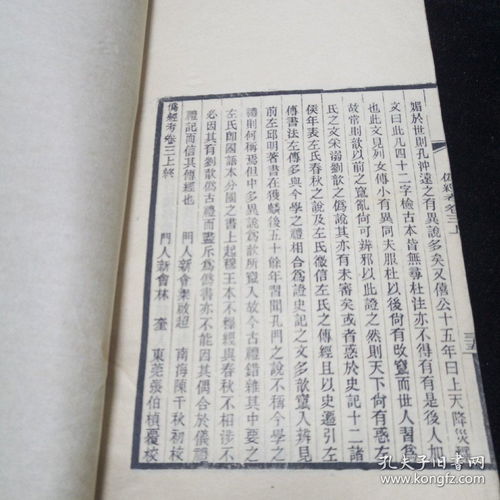 媚於世則孔沖遠之有異說多矣又僖公十五年曰上天降災
文曰此凡四十二字檢古本皆無尋杜注亦不得有有是後人加
也此文見列女傳小有異同夫服杜以後尚有改竄而世人習為
故常則歆以前之竄亂尚可辨邪以此證之然則天下尚有惑左
氏之文采溺劉歆之偽說其亦有未審矣或者惑於史記十二諸
侯年表左氏春秋之說及左氏徵信左氏之傳經且以史遷引左
傳書法左傳多與今學之禮相合為證史記之文多歆竄入辨見
前左邱明著書在獲麟後五十餘年習聞孔門之說不稱今學之
禮則何稱焉但中多異說為歆所竄入故今古禮錯雜其中要之
左氏即國語本分國之書上起穆王本不釋經與春秋不相涉不
必因其有劉歆偽古禮而盡斥為偽書亦不能因其偶合於儀禮
禮記而信其傳經也
門人新會梁啟超 南海陳千秋初校
偽經考卷三上終
門人新會林奎 東莞張伯楨覆校
偽經考卷三上
三十
孔夫子旧书网